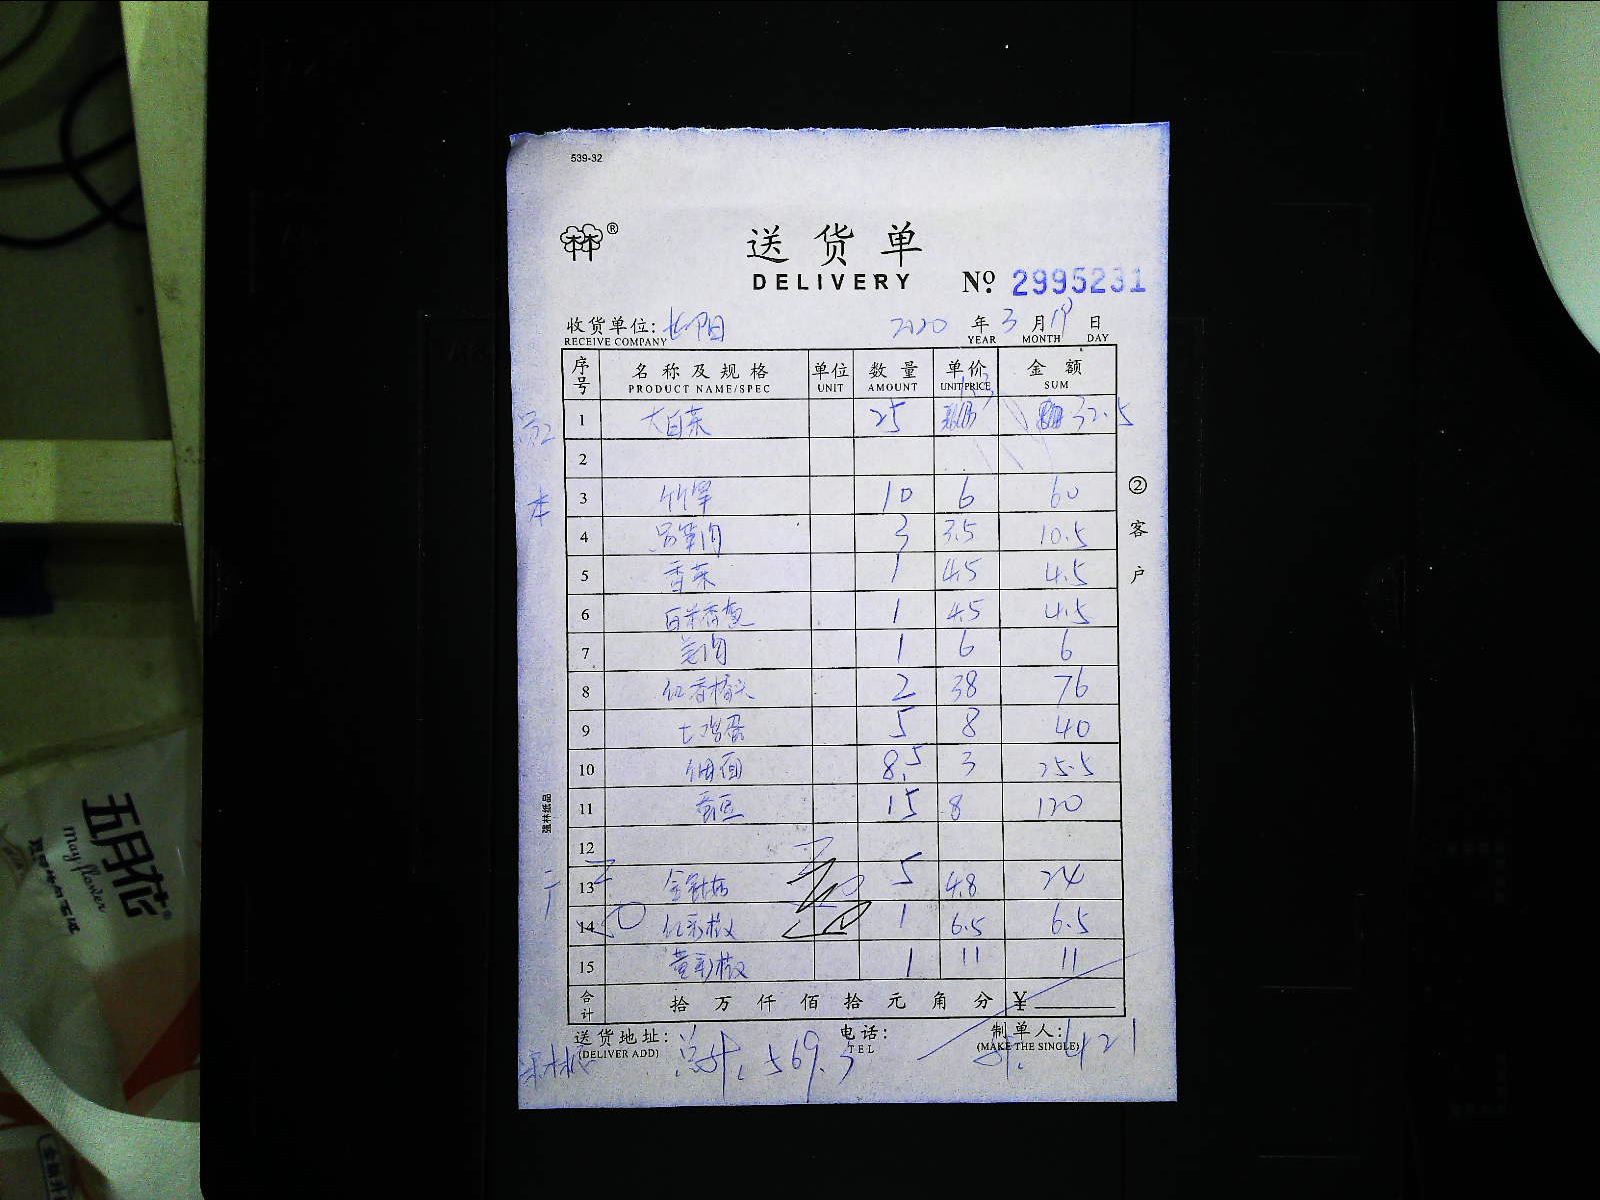 539-32
林®
送货单
DELIVERY Nº 2995231
收货单位: 2020 年 3 月 19 日
RECEIVE COMPANY YEAR MONTH DAY
序号 名称及规格 单位 数量 单价 金额
PRODUCT NAME/SPEC UNIT AMOUNT UNIT PRICE SUM
1.3
1 大白菜 25 32.5
2
本
3 竹笋 10 6 60
4 3 3.5 10.5
5 香菜 1 4.5 4.5
6 1 4.5 4.5
7 姜肉 1 6 6
8 红香椿头 2 38 76
9 土鸡蛋 5 8 40
10 细面 8.5 3 25.5
11 蚕豆 15 8 120
12
13 金针菇 5 4.8 24
14 红彩椒 1 6.5 6.5
15 黄彩椒 1 11 11
合计 拾 万 仟 佰 拾 元 角 分 ¥
送货地址: 电话: 制单人:
(DELIVER ADD) TEL (MAKE THE SINGLE)
总计: 569.5 421
② 客户
强林纸品
五月花®
May flower